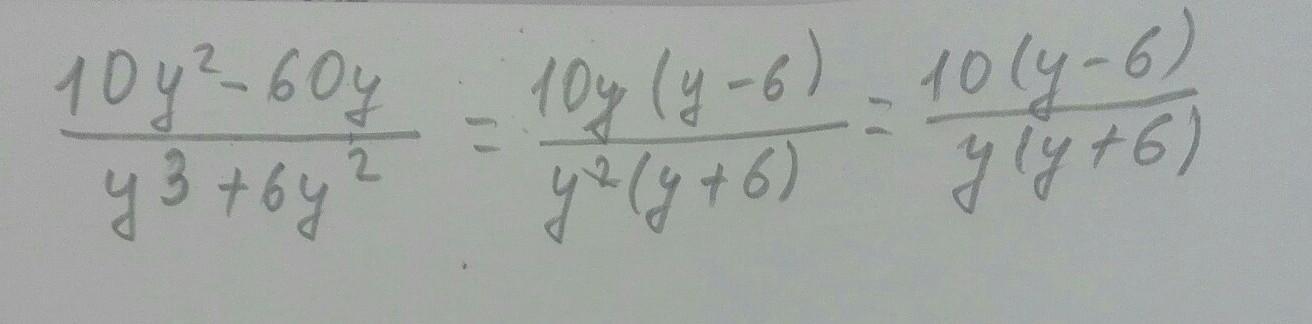 (10y² - 60y)/(y³ + 6y²) = (10y(y - 6))/(y²(y + 6)) = (10(y - 6))/(y(y + 6))